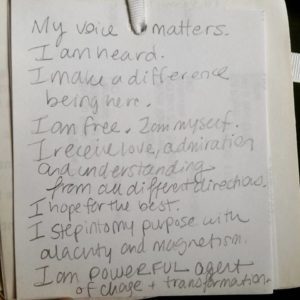 My voice matters.
I am heard.
I make a difference
being here.
I am free. I am myself.
I receive love, admiration
and understanding
from all different directions.
I hope for the best.
I step into my purpose with
alacrity and magnetism.
I am POWERFUL agent
of chage + transformation.